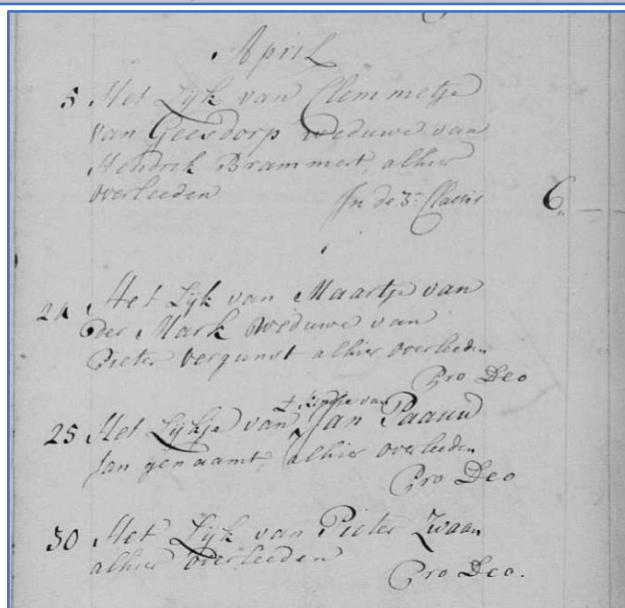 April
5 Het Lijk van Clemmetje
van Geesdorp Weduwe van
Hendrik Brammert, alhier
overleeden In de 3e Classis 6,,
24 Het Lijk van Maartje van
der Mark Weduwe van
Pieter Vergunst alhier overleeden
Pro Deo
't kindje van
25 Het Lijkje van Jan Paauw
Jan genaamt, alhier overleeden
Pro Deo
30 Het Lijk van Pieter Zwaan
alhier overleeden
Pro Deo.